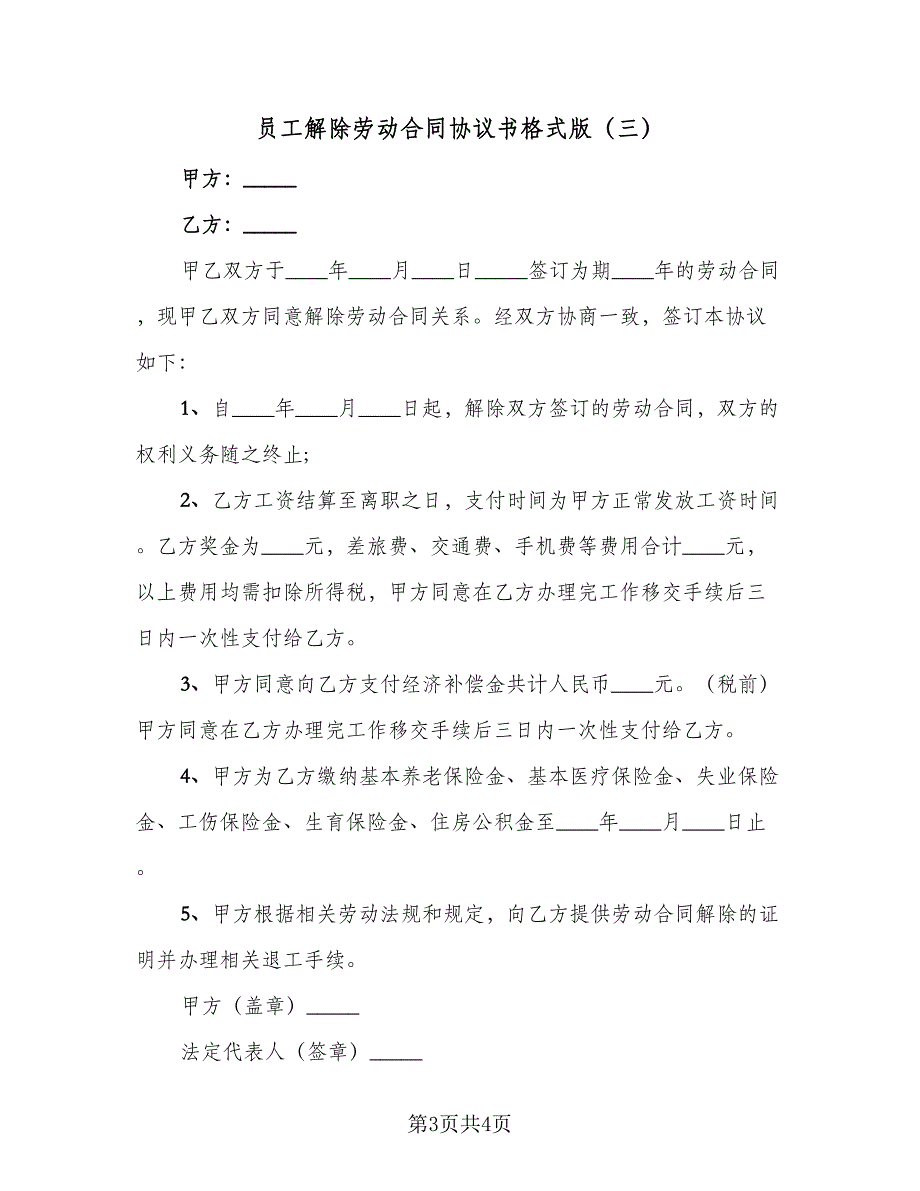 员工解除劳动合同协议书格式版（三）
甲方：_____
乙方：_____
甲乙双方于____年____月____日_____签订为期____年的劳动合同
，现甲乙双方同意解除劳动合同关系。经双方协商一致，签订本协议
如下：
1、自____年____月____日起，解除双方签订的劳动合同，双方的
权利义务随之终止;
2、乙方工资结算至离职之日，支付时间为甲方正常发放工资时间
。乙方奖金为____元，差旅费、交通费、手机费等费用合计____元，
以上费用均需扣除所得税，甲方同意在乙方办理完工作移交手续后三
日内一次性支付给乙方。
3、甲方同意向乙方支付经济补偿金共计人民币____元。（税前）
甲方同意在乙方办理完工作移交手续后三日内一次性支付给乙方。
4、甲方为乙方缴纳基本养老保险金、基本医疗保险金、失业保险
金、工伤保险金、生育保险金、住房公积金至____年____月____日止
。
5、甲方根据相关劳动法规和规定，向乙方提供劳动合同解除的证
明并办理相关退工手续。
甲方（盖章）_____
法定代表人（签章）_____
第3页共4页